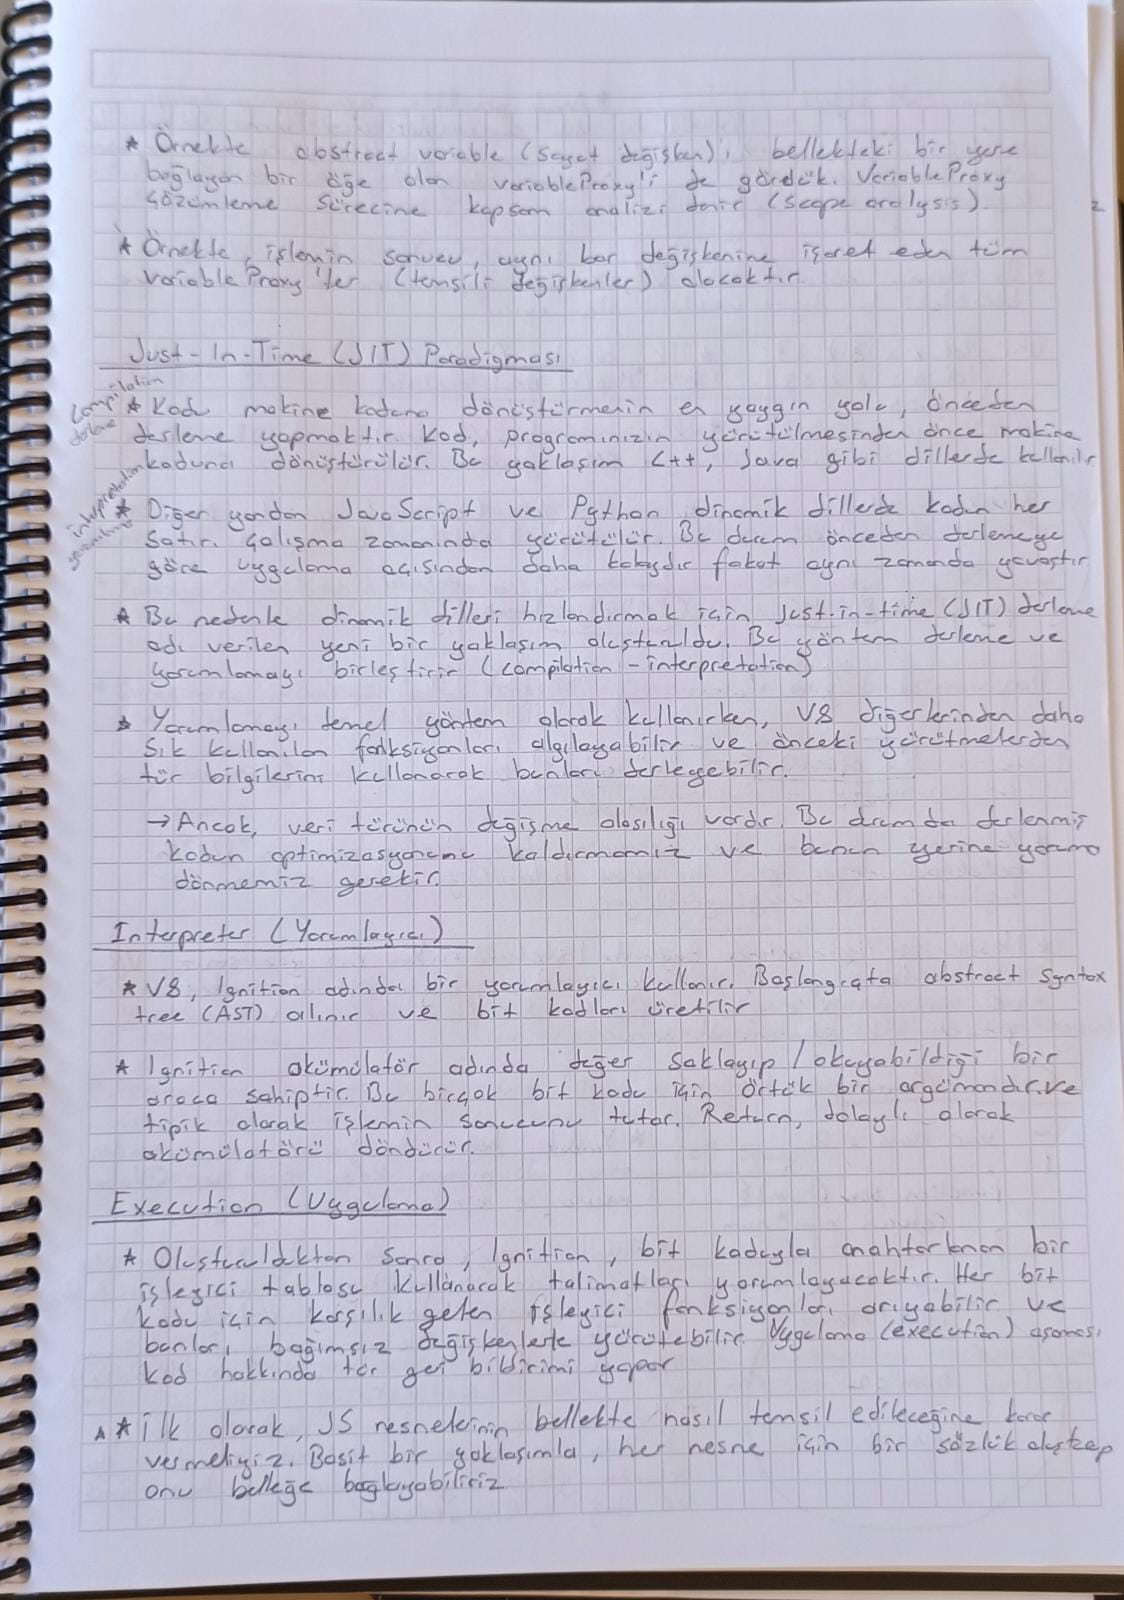 * Örnekte abstract variable (soyut değişken)ı bellekteki bir yere
bağlayan bir öğe olan variableProxy'i de gördük. VariableProxy
çözümleme sürecine kapsam analizi denir (scope analysis).
* Örnekte, işlemin sonucu, aynı bar değişkenine işaret eden tüm
variable Proxy'ler (temsili değişkenler) olacaktır.
Just-In-Time (JIT) Paradigması
Compilation
derleme
* Kodu makine koduna dönüştürmenin en yaygın yolu, önceden
derleme yapmaktır. Kod, programınızın yürütülmesinden önce makine
koduna dönüştürülür. Bu yaklaşım C++, Java gibi dillerde kullanılır
interpretation
* Diğer yandan JavaScript ve Python dinamik dillerde kodun her
satırı çalışma zamanında yürütülür. Bu durum önceden derlemeye
göre uygulama açısından daha kolaydır fakat aynı zamanda yavaştır
* Bu nedenle dinamik dilleri hızlandırmak için Just-in-time (JIT) derleme
adı verilen yeni bir yaklaşım oluşturuldu. Bu yöntem derleme ve
yorumlamayı birleştirir (compilation - interpretation)
* Yorumlamayı temel yöntem olarak kullanırken, V8 diğerlerinden daha
sık kullanılan fonksiyonları algılayabilir ve önceki yürütmelerden
tür bilgilerini kullanarak bunları derleyebilir.
→ Ancak, veri türünün değişme olasılığı vardır. Bu durumda derlenmiş
kodun optimizasyonunu kaldırmamız ve bunun yerine yoruma
dönmemiz gerekir.
Interpreter (Yorumlayıcı)
* V8, Ignition adında bir yorumlayıcı kullanır. Başlangıçta abstract syntax
tree (AST) alınır ve bit kodları üretilir
* Ignition akümülatör adında değer saklayıp/okuyabildiği bir
araca sahiptir. Bu birçok bit kodu için örtük bir argümandır ve
tipik olarak işlemin sonucunu tutar. Return, dolaylı olarak
akümülatörü döndürür.
Execution (Uygulama)
* Oluşturulduktan sonra, Ignition, bit koduyla anahtarlanan bir
işleyici tablosu kullanarak talimatları yorumlayacaktır. Her bit
kodu için karşılık gelen işleyici fonksiyonları arıyabilir ve
bunları bağımsız değişkenlerle yürütebilir. Uygulama (execution) aşaması
kod hakkında tür geri bildirimi yapar
* ilk olarak, JS nesnelerinin bellekte nasıl temsil edileceğine karar
vermeliyiz. Basit bir yaklaşımla, her nesne için bir sözlük oluşturup
onu belleğe bağlayabiliriz